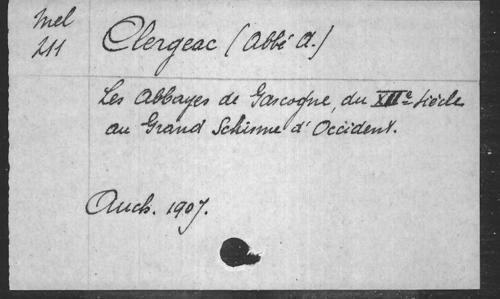 Mel
211
Clergeac (Abbé A.)
Les Abbayes de Gascogne, du XIIe siècle
au Grand Schisme d'Occident.
Auch. 1907.